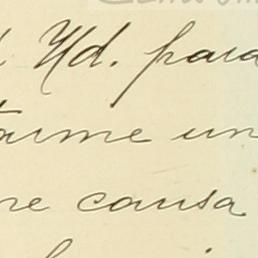 Ud. para
tarme un
re causa